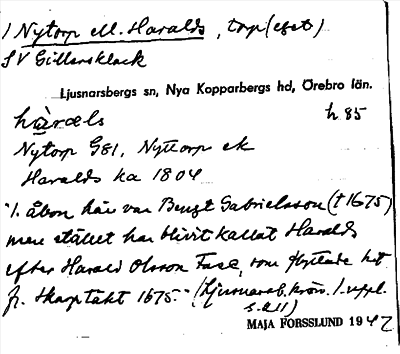 1 Nytorp ell. Haralds, torp (eget)
SV Gillersklack
Ljusnarsbergs sn, Nya Kopparbergs hd, Örebro län.
hàrals h 85
Nytorp G81, Nyttorp ek
Haralds ka 1804
"1. åbon här var Bengt Gabrielsson († 1675)
men stället har blivit kallat Haralds
efter Harald Olsson Fase, som flyttade hit
fr. Skarptäkt 1675." (Ljusnarsb. krön. 1. uppl.
s. 211)
MAJA FORSSLUND 1942